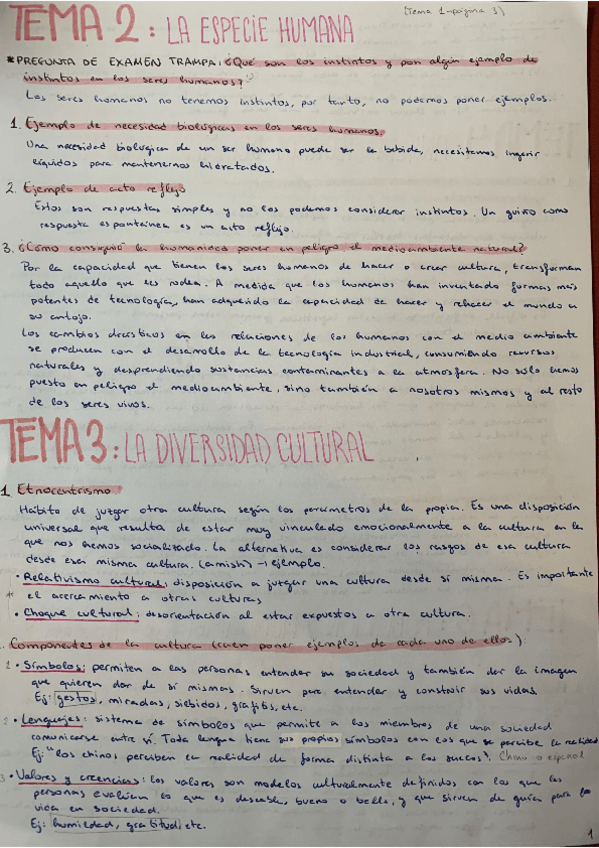 (Tema 1→página 3)
TEMA 2: LA ESPECIE HUMANA
*PREGUNTA DE EXAMEN TRAMPA: ¿Qué son los instintos y pon algún ejemplo de
instintos en los seres humanos?
Los seres humanos no tenemos instintos, por tanto, no podemos poner ejemplos.
1. Ejemplo de necesidad biológicas en los seres humanos.
Una necesidad biológica de un ser humano puede ser la bebida, necesitamos ingerir
líquidos para mantenernos hidratados.
2. Ejemplo de acto reflejo
Estos son respuestas simples y no los podemos considerar instintos. Un guiño como
respuesta espontánea es un acto reflejo.
3. ¿Cómo consiguió la humanidad poner en peligro el medioambiente natural?
Por la capacidad que tienen los seres humanos de hacer o crear cultura, transforman
todo aquello que les rodea. A medida que los humanos han inventado formas más
potentes de tecnología, han adquirido la capacidad de hacer y rehacer el mundo a
su antojo.
Los cambios drásticos en las relaciones de los humanos con el medio ambiente
se producen con el desarrollo de la tecnología industrial, consumiendo recursos
naturales y desprendiendo sustancias contaminantes a la atmósfera. No sólo hemos
puesto en peligro el medioambiente, sino también a nosotros mismos y al resto
de los seres vivos.
TEMA 3: LA DIVERSIDAD CULTURAL
1. Etnocentrismo
Hábito de juzgar otra cultura según los parámetros de la propia. Es una disposición
universal que resulta de estar muy vinculado emocionalmente a la cultura en la
que nos hemos socializado. La alternativa es considerar los rasgos de esa cultura
desde esa misma cultura. (amish)→ejemplo.
• Relativismo cultural: disposición a juzgar una cultura desde sí misma. Es importante
* el acercamiento a otras culturas
• Choque cultural: desorientación al estar expuestos a otra cultura.
Componentes de la cultura (caen poner ejemplos de cada uno de ellos)
1 • Símbolos: permiten a las personas entender su sociedad y también dar la imagen
que quieren dar de sí mismas. Sirven para entender y construir sus vidas.
Ej: gestos, miradas, silbidos, grafitis, etc.
2 • Lenguajes: sistema de símbolos que permite a los miembros de una sociedad
comunicarse entre sí. Toda lengua tiene sus propios símbolos con los que se percibe la realidad
Ej: "los chinos perciben la realidad de forma distinta a los suecos". Chino o español
3 • Valores y creencias: los valores son modelos culturalmente definidos con los que las
personas evalúan lo que es deseable, bueno o bello, y que sirven de guía para la
vida en sociedad.
Ej: humildad, gratitud, etc.
1